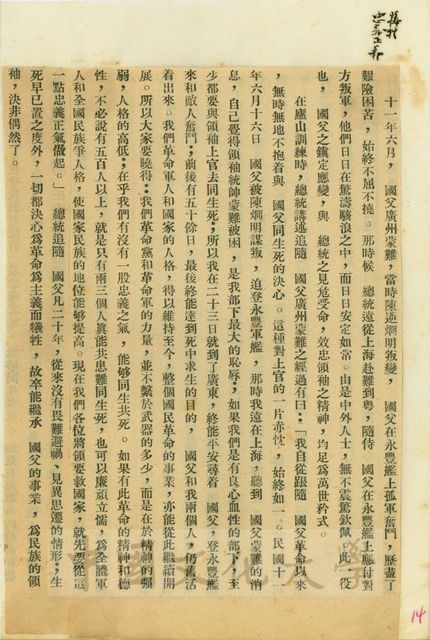 十一年六月，　國父廣州蒙難，當時陳逆烱明叛變，　國父在永豐艦上孤軍奮鬥，歷盡了
艱險困苦，始終不屈不撓。那時候　總統遠從上海赴難到粵，隨侍　國父在永豐艦上應付對
方叛軍，他們日日在驚濤駭浪之中，而日日安定如常。由是中外人士，無不震驚欽佩，此一役
也，　國父之鎮定應變，與　總統之見危受命，效忠領袖之精神，均足爲萬世矜式。
在廬山訓練時，總統講述追隨　國父廣州蒙難之經過有曰：「我自從跟隨　國父革命以來
，無時無地不抱着與　國父同生死的決心。這種對上官的一片赤忱，始終如一。民國十一
年六月十六日　國父被陳烱明謀叛，迫登永豐軍艦，那時我遠在上海，聽到　國父蒙難的消
息，自己覺得領袖統帥蒙難被困，是我部下最大的恥辱，如果我們是有良心血性的部下，至
少都要與領袖上官去同生死；所以我在二十三日就到了廣東，終能平安尋着　國父，登永豐艦
來和敵人奮鬥；前後有五十餘日，最後終能達到死中求生的目的，　國父和我兩個人，仍舊活
着出來。我們革命軍人和國家的人格，得以維持至今，整個國民革命的事業，亦能從此繼續開
展。所以大家要曉得：我們革命黨和革命軍的力量，並不繫於武器的多少，而是在於精神的强
弱，人格的高低；在乎我們有沒有一股忠義之氣，能夠同生共死。如果有此革命的精神和德
性，不必說有五百人以上，就是只有兩三個人眞能共患難同生死，也可以廉頑立懦，爲全體軍
人和全國民族爭人格，使國家民族的地位能够提高。現在各位將領要救國家，就先要從這
一點忠義正氣做起。」　總統追隨　國父凡二十年，從來沒有畏難避禍、見異思遷的情形；生
死早已置之度外，一切都決心爲革命爲主義而犧牲，故卒能繼承　國父的事業，爲民族的領
袖，決非偶然了。
中國文化大學
14